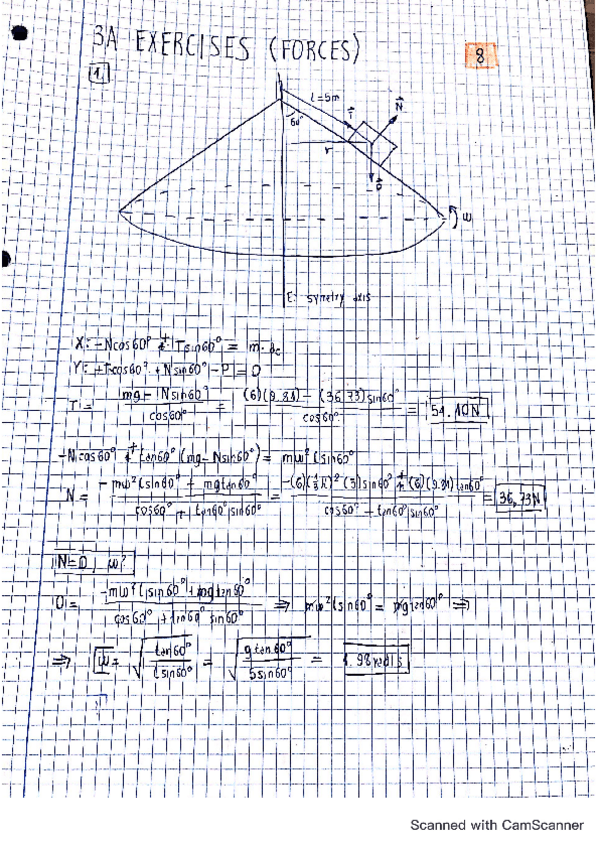 3A EXERCISES (FORCES)
8
1.
L=5m
60°
T
N
r
P
ω
E: symetry axis
X: -Ncos60° + Tsin60° = m·ac
Y: +Tcos60° + Nsin60° - P = 0
T = mg - Nsin60° / cos60° = (6)(9.81) - (36,73)sin60° / cos60° = 54.10N
-Ncos60° + tan60° (mg - Nsin60°) = mω²lsin60°
N = -mω²lsin60° + mgtan60° / cos60° + tan60°sin60° =
= 36,73N
N=0, ω?
0 = -mω²lsin60° + mgtan60° / cos60° + tan60°sin60° ⇒ mω²lsin60° = mgtan60° ⇒
⇒ ω = √ tan60° / lsin60° = √ g tan60° / 5sin60° = 1.98rad/s
Scanned with CamScanner